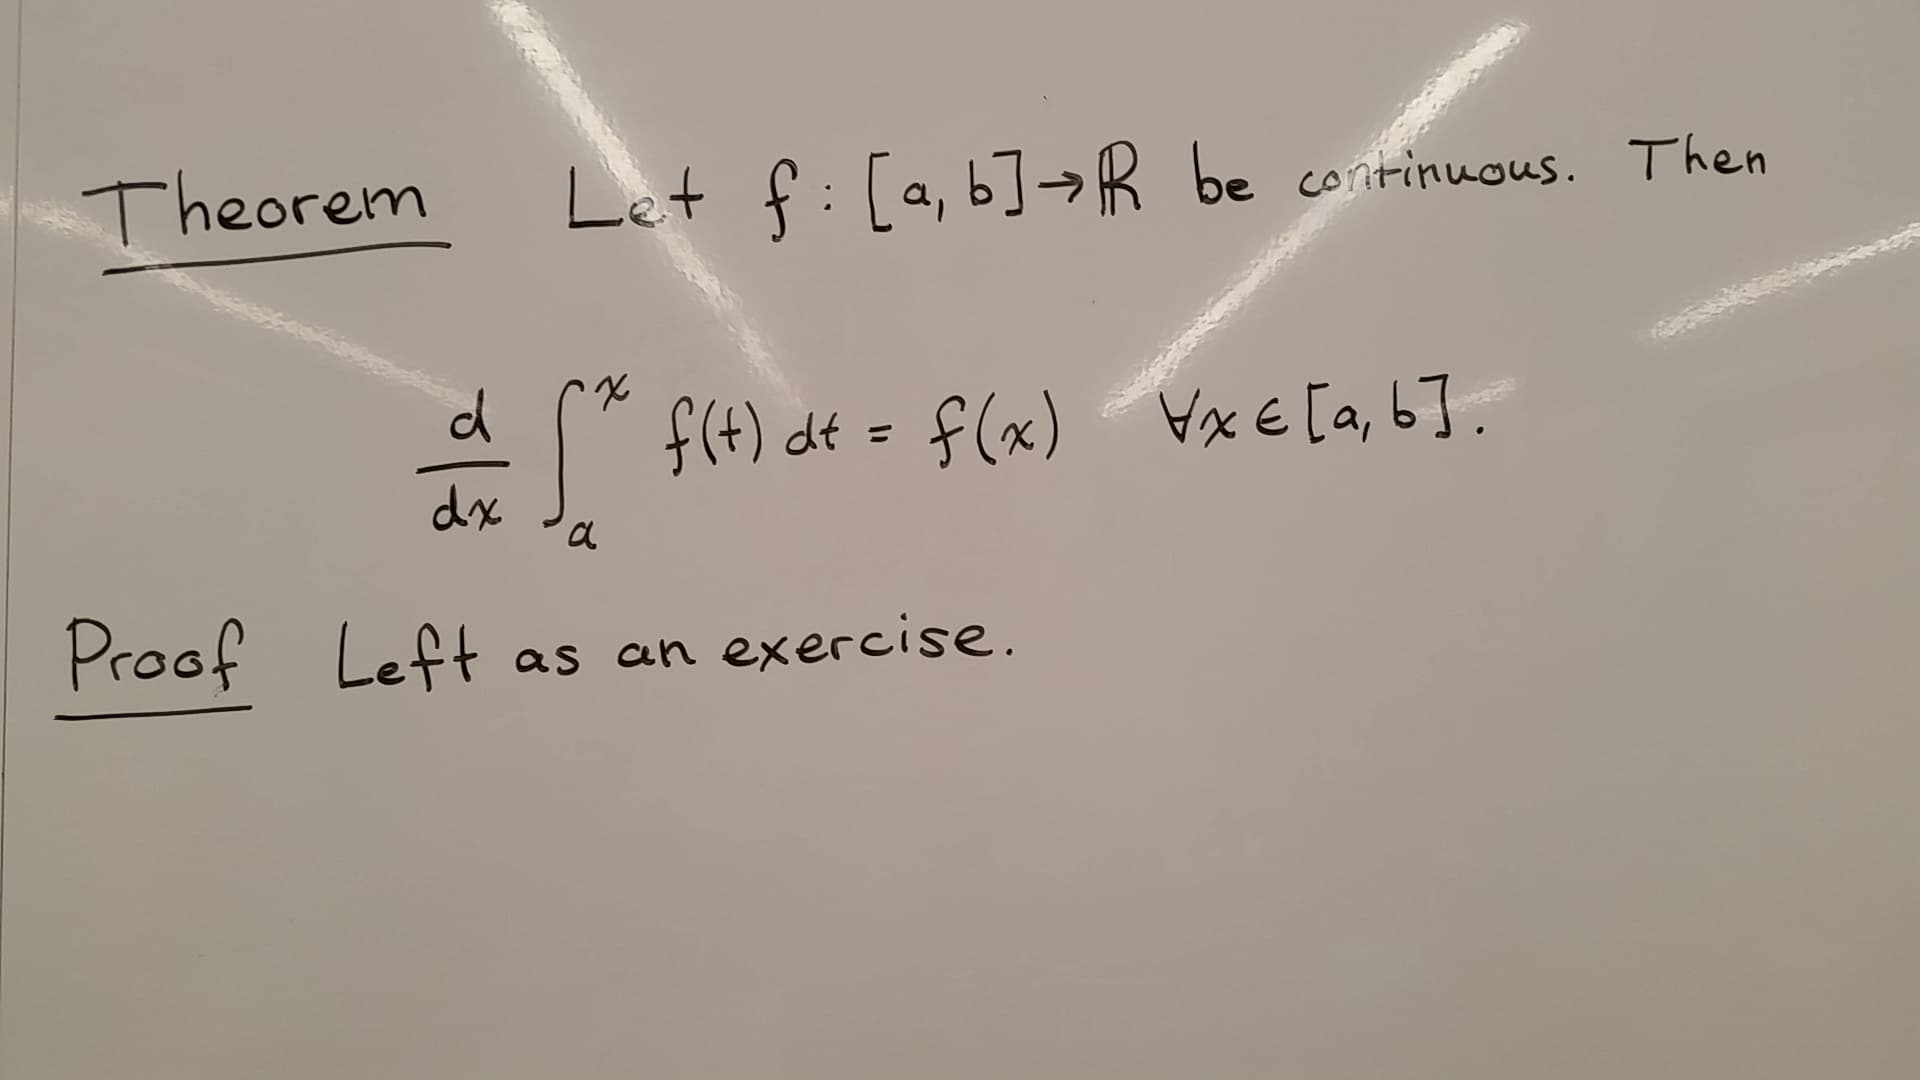 Theorem Let f : [a, b] → ℝ be continuous. Then
d/dx ∫_a^x f(t) dt = f(x) ∀x ∈ [a, b].
Proof Left as an exercise.